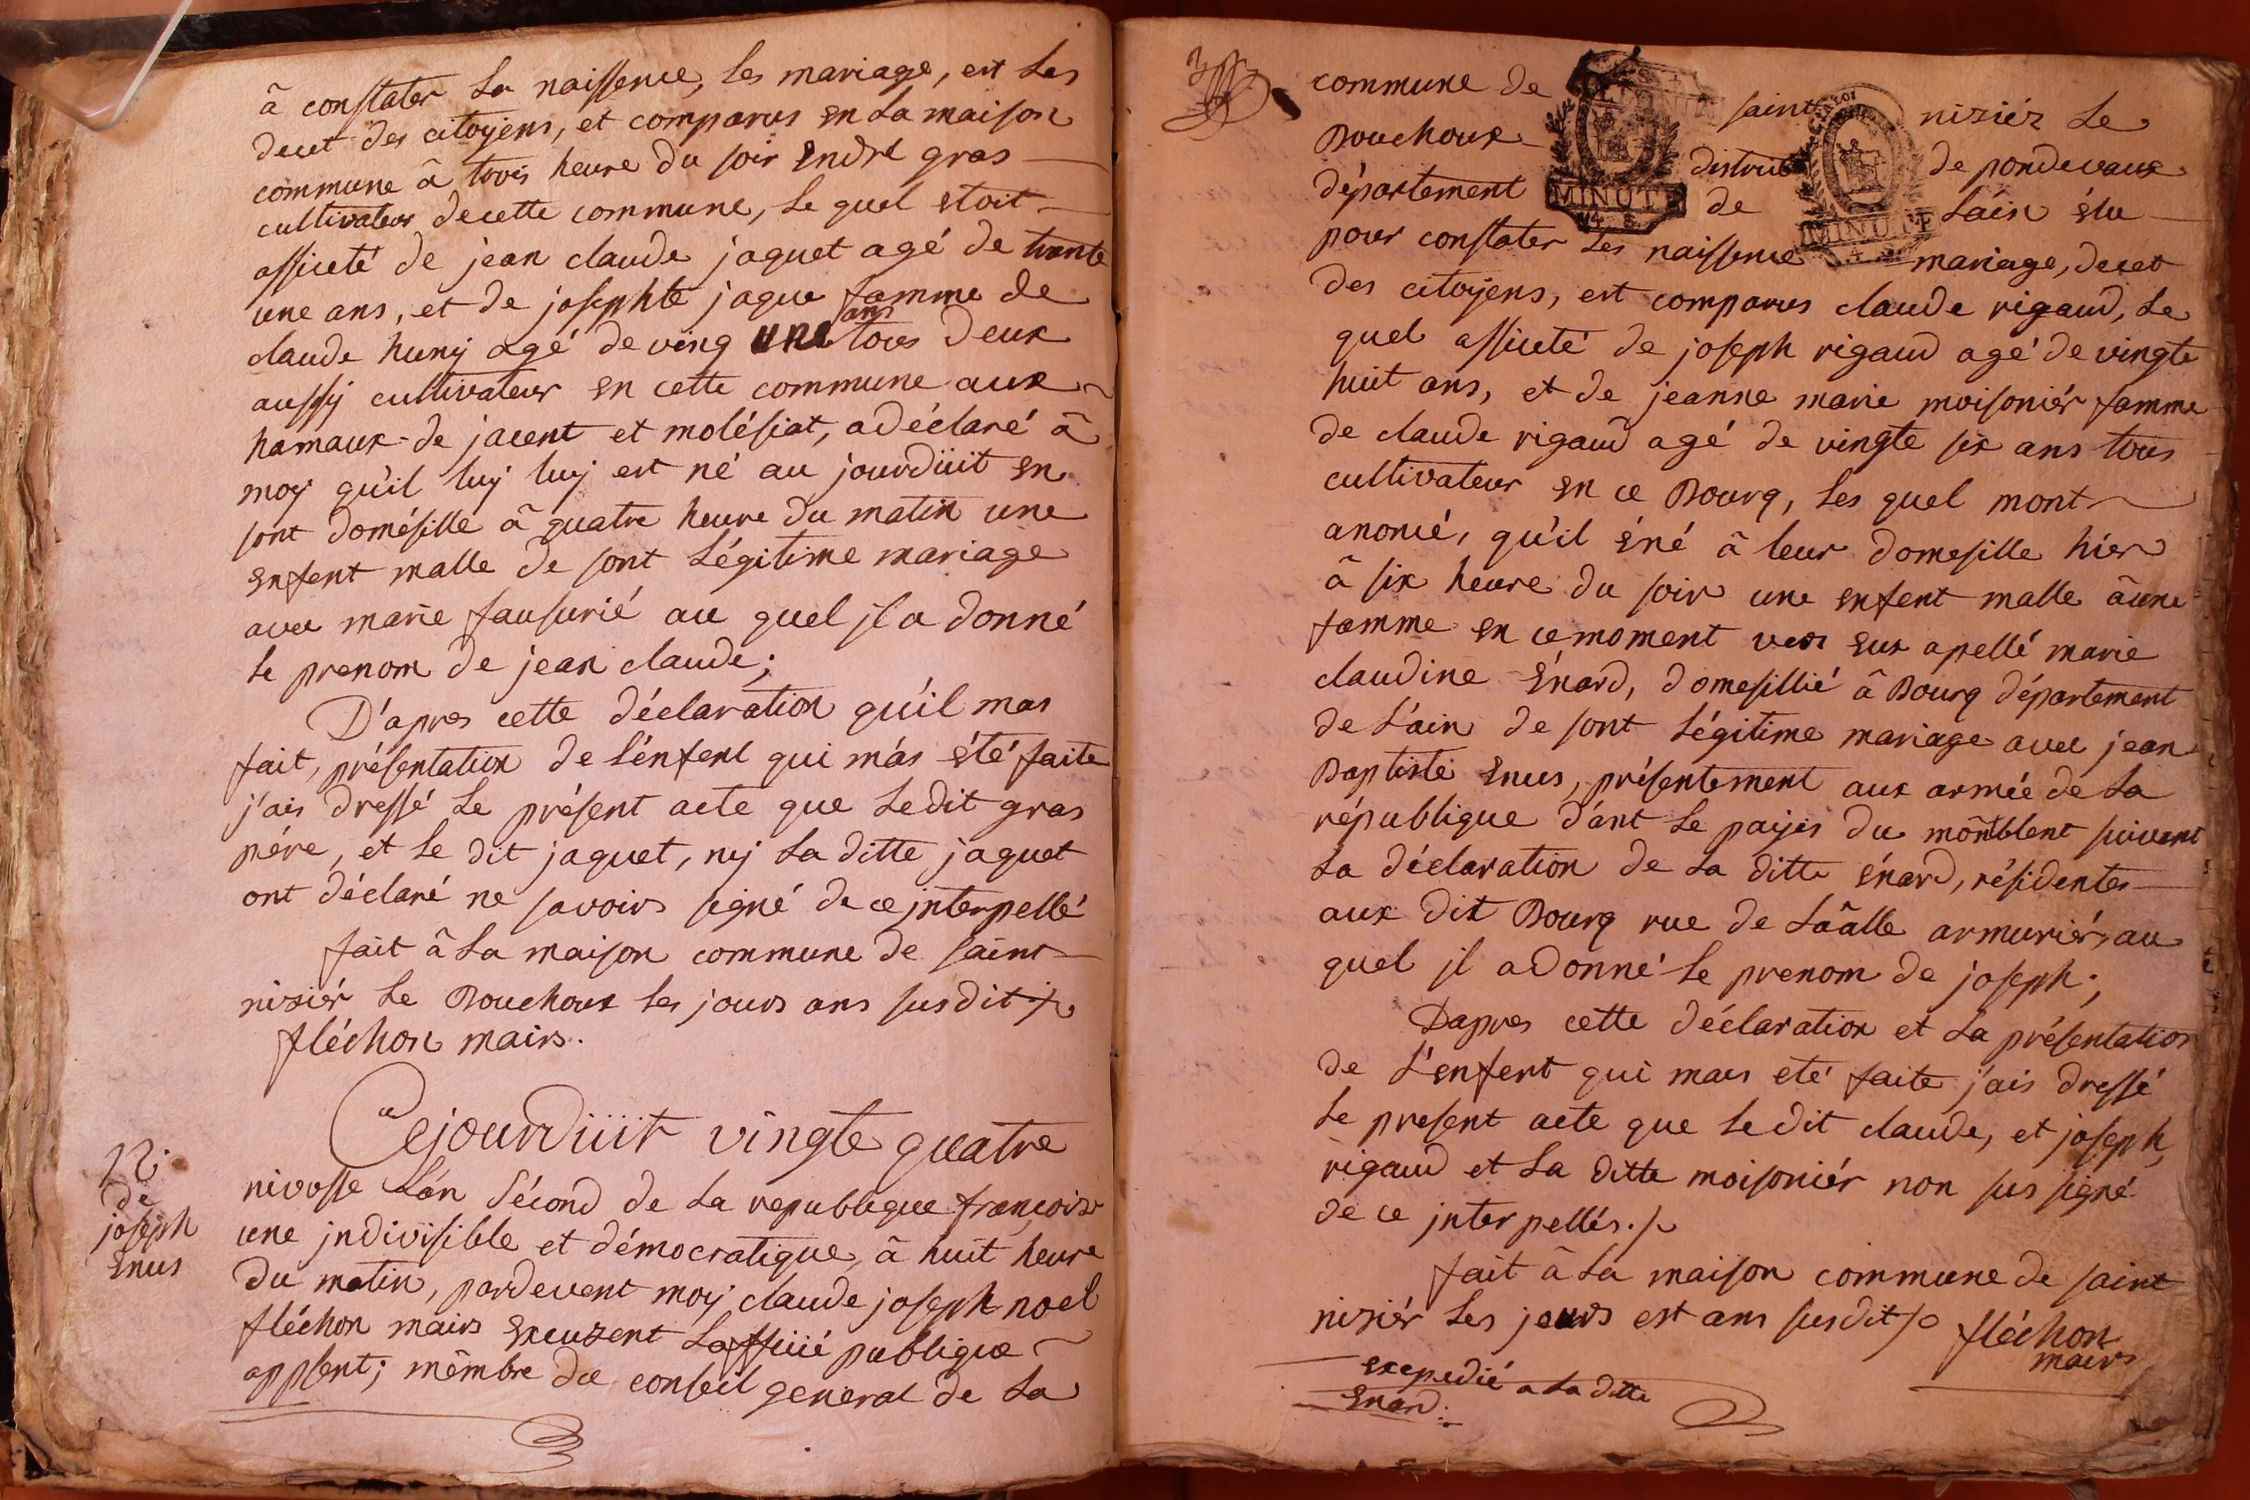 â constater La naissence, les mariage, est Les
decet des citoyens, et comparus en La maison
commune â trois heure du soir Endre gras
cultivateur decette commune, Le quel etoit
assicté de jean claude jaquet agé de trante
une ans, et de josephte jaque famme de
claude huny agé de ving une ans tous deux
aussy cultivateur en cette commune aux
hamaux de jacent et molésiat, a déclaré â
moy qu'il luy luy est né au jourdüit en
sont domésille â quatre heure du matin une
enfent malle de sont Légitime mariage
avec marie fausurié au quel jl a donné
le prenom de jean claude;
D'apres cette déclaration qu'il mas
fait, présentation de L'énfent qui m'as été faite
j'ais dressé Le présent acte que Ledit gras
pére, et Le dit jaquet, ny La ditte jaquet
ont déclaré ne savoirs signé de ce jnterpellé
fait â La maison commune de saint
nisiér Le Bouchoux Les jours ans susdit
fléchon mairs.
Cejourdüit vingte quatre
N.
de
joseph
Enus
nivosse L'án Sécond de La republique françoise
une jndivisible et démocratique, â huit heure
du matin, pardevent moy claude joseph noel
fléchon mairs Exeuzent Laffiüé publique
apsent; mêmbre du conseil general de La
commune de saint niziér Le
Bouchoux district de pondevaux
département de Láin élu
MINUTE
MINUTE
pour constater Les naissence mariage, decet
des citoyens, est comparus claude rigaud, Le
quel assicté de joseph rigaud agé de vingte
huit ans, et de jeanne marie moisoniér famme
de claude rigaud agé de vingte six ans tous
cultivateur en ce Bourg, Les quel mont
anoncé, qu'il éné â leur domesille hier
â six heure du soir une enfent malle âune
famme en cemoment vers eux apellé marie
claudine Énard, domesillié â Bourg département
de L'ain de sont Légitime mariage avec jean
Baptiste Enus, présentement aux armée de La
république d'ant Le payis du montblent suivent
La déclaration de La ditte énard, résidentes
aux dit Bourg rue de Laâlle armuriér, au
quel jl adonné Le prenom de joseph;
Dapres cette déclaration et La présentation
de L'enfent qui mas eté faite j'ais dressé
Le present acte que Le dit claude, et joseph
rigaud et La ditte moisoniér non sus signé
de ce jnterpellés.
fait â La maison commune de saint
niziér Les jours est ans susdit fléchon
mairs
expedié a La ditte
Enard.